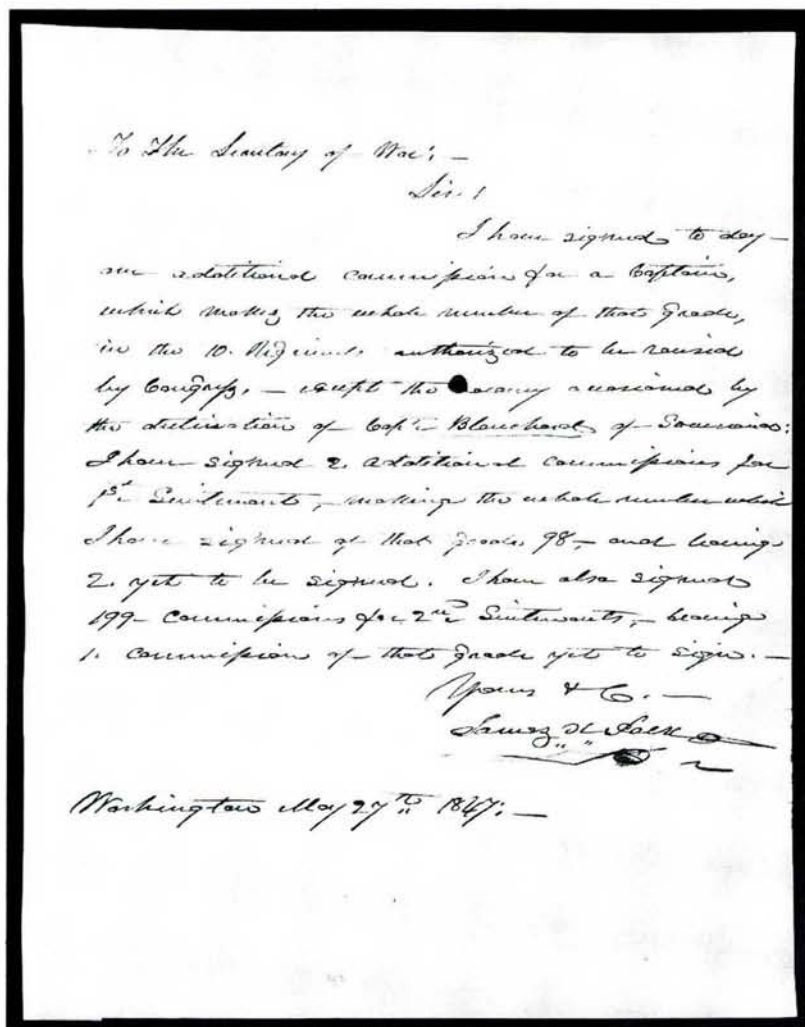 To The Secretary of War; —
Sir!
I have signed to day —
an additional commission for a Captain,
which makes the whole number of that grade,
in the 10. Regiments authorized to be raised
by Congress, — except the vacancy occasioned by
the declination of Capt. Blanchard of Louisiana;
I have signed 2. additional commissions for
1st Lieutenants, — making the whole number which
I have signed of that grade 98, — and leaving
2. yet to be signed. I have also signed
199 — commissions for 2nd Lieutenants, — leaving
1. commission of that grade yet to sign. —
Yours &C. —
James K Polk
Washington May 27th 1847; —